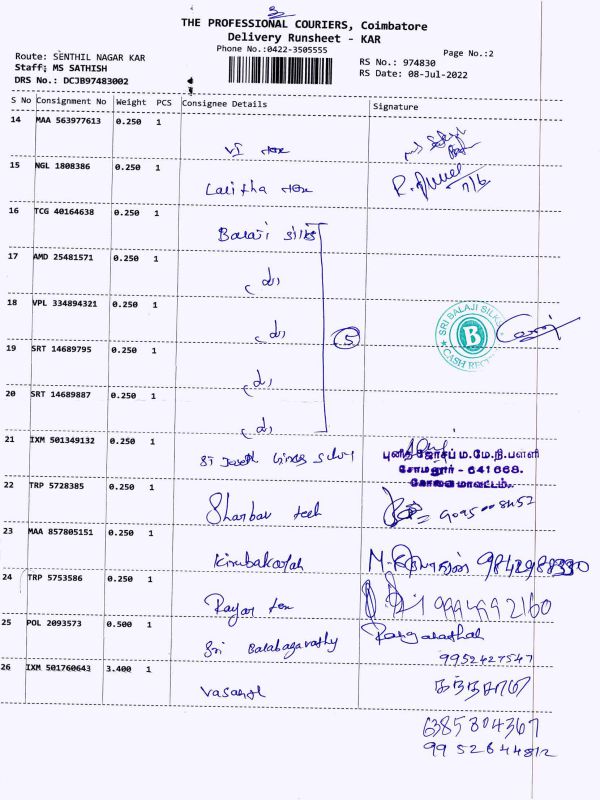 THE PROFESSIONAL COURIERS, Coimbatore
Delivery Runsheet - KAR
Phone No.:0422-3505555
Page No.:2
Route: SENTHIL NAGAR KAR
Staff: MS SATHISH
DRS No.: DCJB97483002
RS No.: 974830
RS Date: 08-Jul-2022
S No Consignment No Weight PCS Consignee Details Signature
14 MAA 563977613 0.250 1
VI
15 NGL 1808386 0.250 1
Lalitha
16 TCG 40164638 0.250 1
Balaji
17 AMD 25481571 0.250 1
18 VPL 334894321 0.250 1
5
SRI BALAJI SILKS
B
19 SRT 14689795 0.250 1
20 SRT 14689887 0.250 1
21 IXM 501349132 0.250 1
ST
புனித ஜோசப் ம.மே.நி.பள்ளி
சோமனூர் - 641668.
கோவை மாவட்டம்.
22 TRP 5728385 0.250 1
Sharbav tech
23 MAA 857805151 0.250 1
Kirubakaran
24 TRP 5753586 0.250 1
Rayar tex
9994992160
25 POL 2093573 0.500 1
Sri Balabagavathy
9952427547
26 IXM 501760643 3.400 1
Vasanth
6385804367